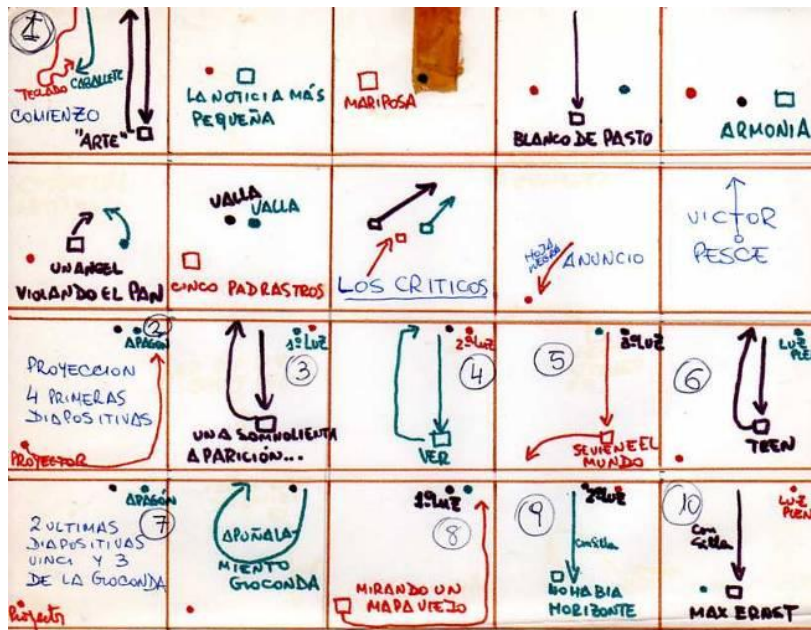 1
TECLADO
CABALLETE
COMIENZO
"ARTE"
LA NOTICIA MÁS
PEQUEÑA
MARIPOSA
BLANCO DE PASTO
ARMONIA
UN ANGEL
VIOLANDO EL PAN
VALLA
VALLA
CINCO PADRASTROS
LOS CRITICOS
HOJA
NEGRA
ANUNCIO
VICTOR
PESCE
2
APAGÓN
PROYECCION
4 PRIMERAS
DIAPOSITIVAS
PROYECTOR
1ª LUZ
3
UNA SOMNOLIENTA
APARICIÓN...
2ª LUZ
4
VER
3ª LUZ
5
SE VIENE EL
MUNDO
LUZ
PLE
6
TREN
APAGÓN
7
2 ULTIMAS
DIAPOSITIVAS
VINCI Y 3
DE LA GIOCONDA
Proyector
APUÑALA-
MIENTO
GIOCONDA
1ª LUZ
8
MIRANDO UN
MAPA VIEJO
2ª LUZ
9
con silla
NO HABIA
HORIZONTE
LUZ
PLEN
10
con
silla
MAX ERNST